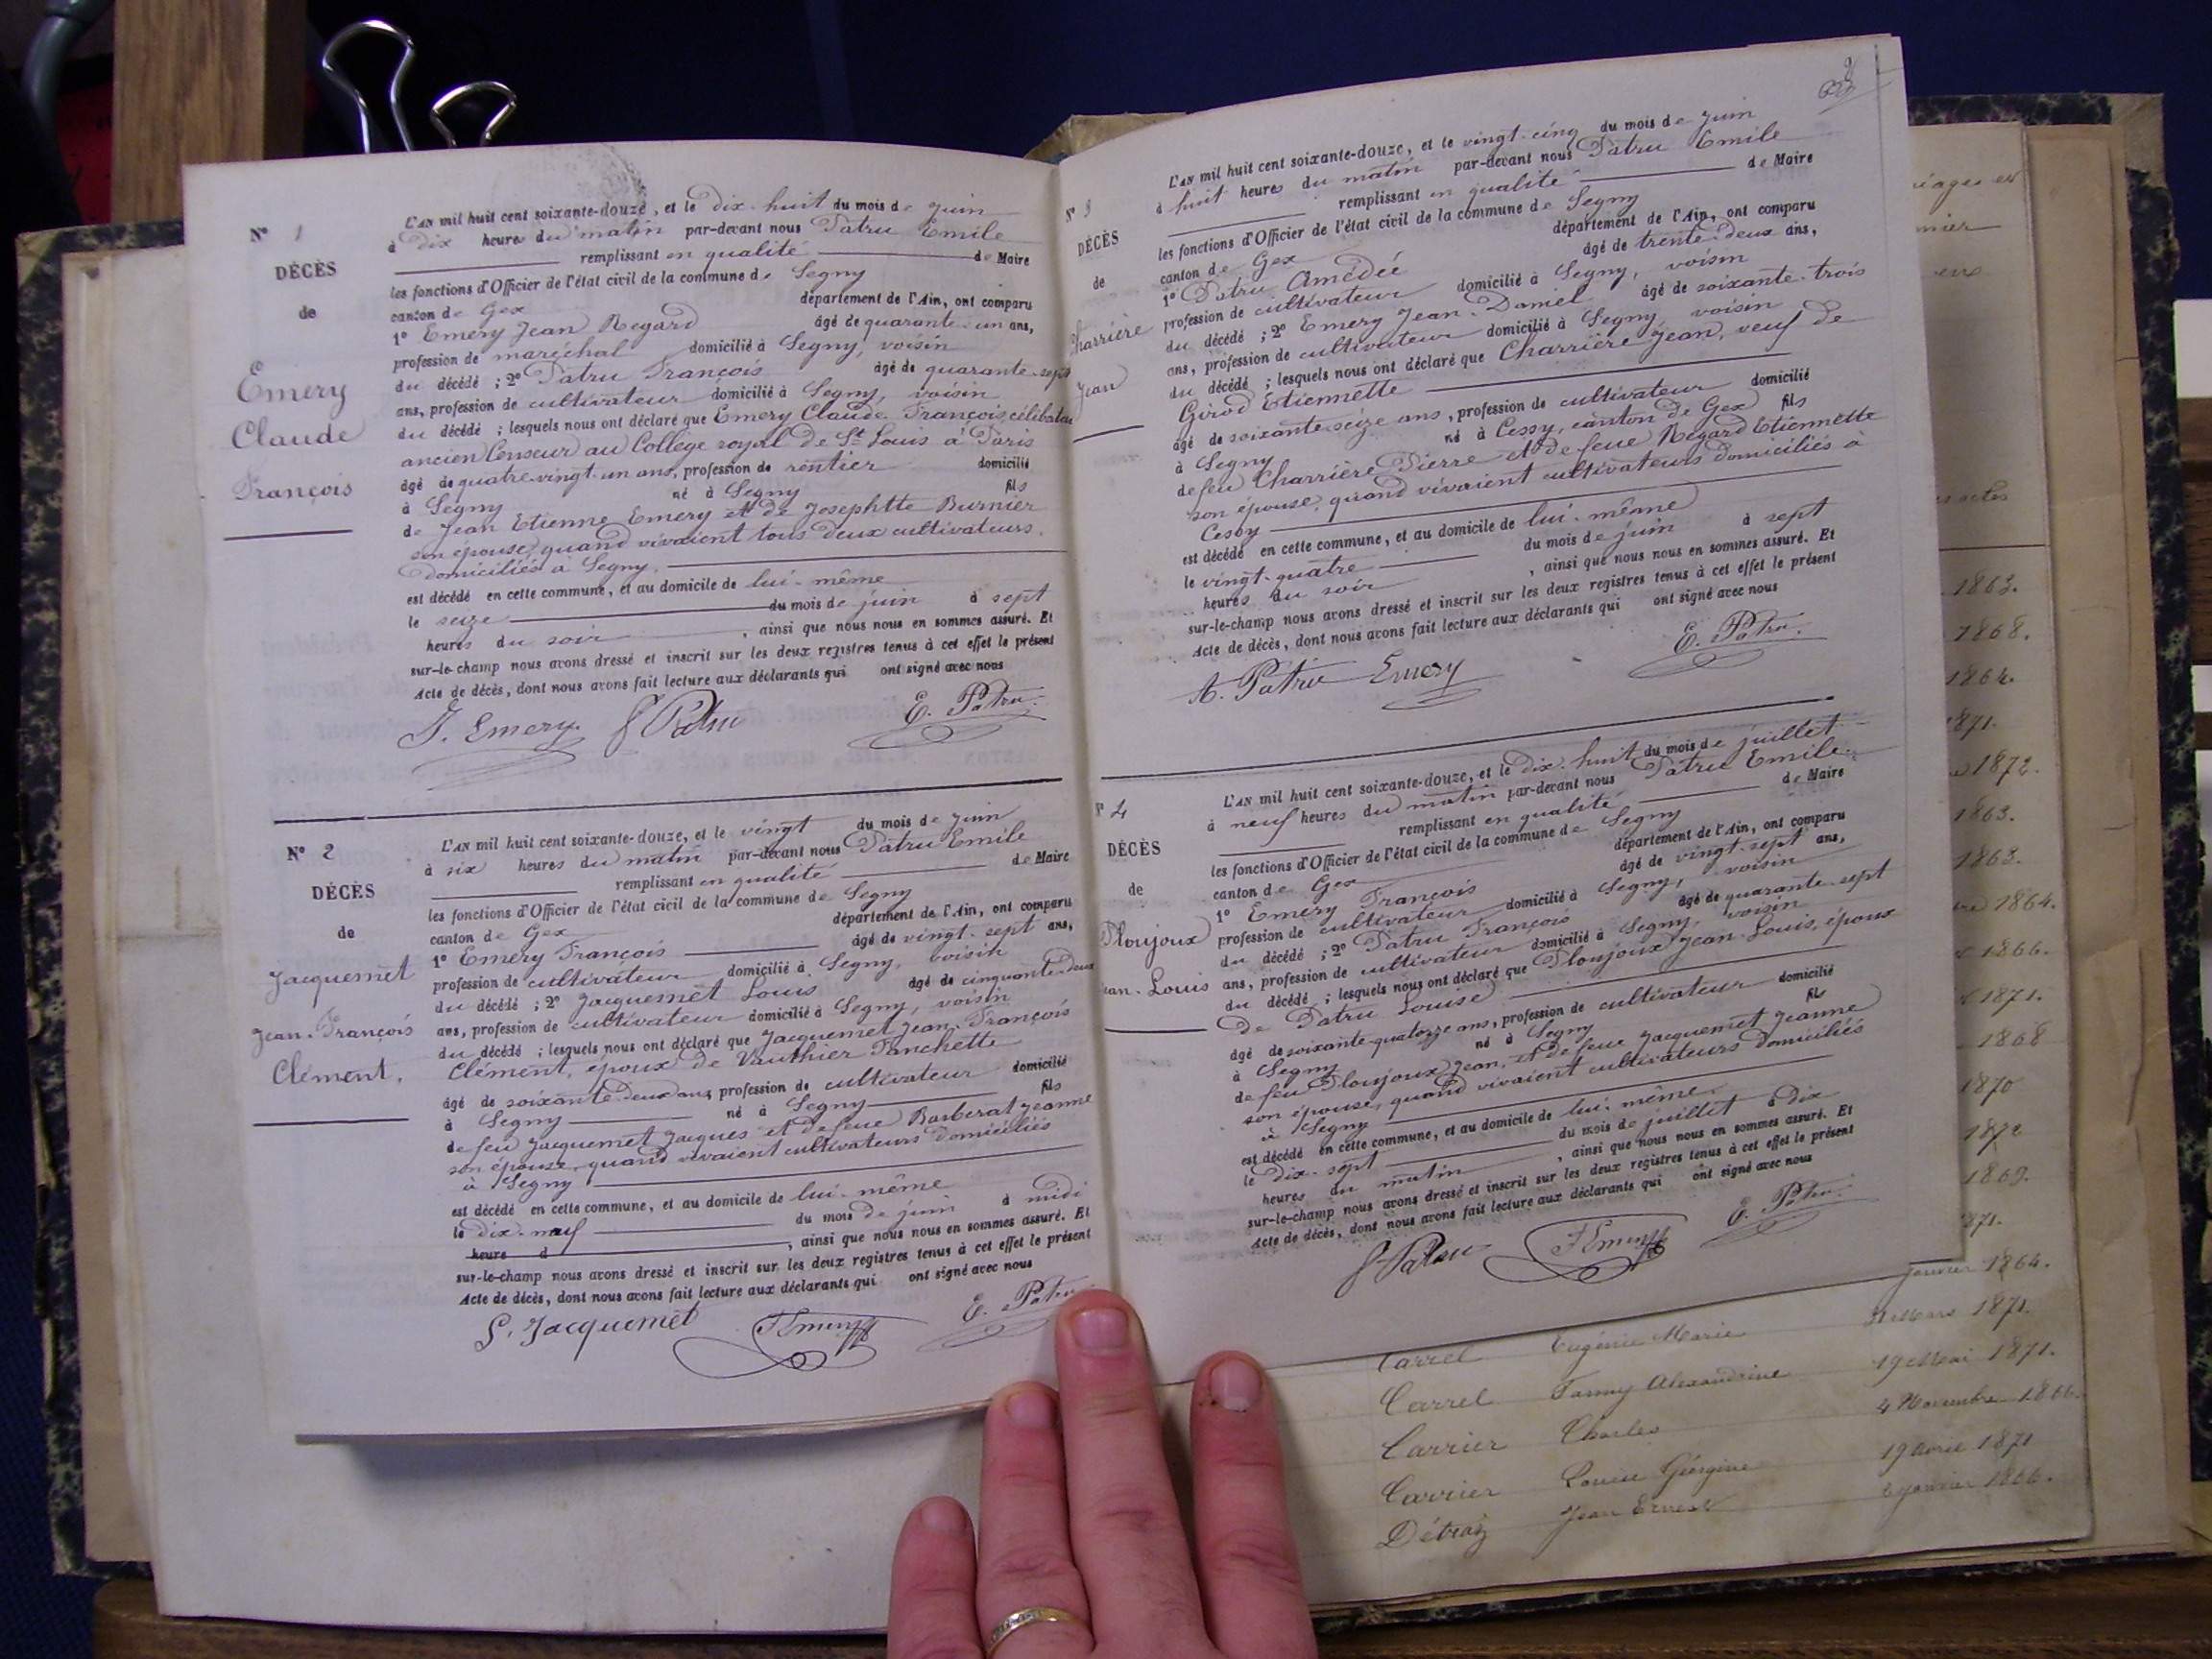 N° 1
DÉCÈS
de
Emery
Claude
François
L'AN mil huit cent soixante-douze, et le dix-huit du mois de juin
à dix heures du matin par-devant nous Patru Emile
remplissant en qualité de Maire
les fonctions d'Officier de l'état civil de la commune de Segny
canton de Gex département de l'Ain, ont comparu
1° Emery Jean Regard âgé de quarante-un ans,
profession de maréchal domicilié à Segny, voisin
du décédé ; 2° Patru François âgé de quarante-sept
ans, profession de cultivateur domicilié à Segny, voisin
du décédé ; lesquels nous ont déclaré que Emery Claude François célibataire
ancien Censeur au College royal de St Louis à Paris
âgé de quatre-vingt-un ans, profession de rentier domicilié
à Segny né à Segny fils
de Jean Etienne Emery et de Josephtte Burnier
son épouse, quand vivaient tous deux cultivateurs
domiciliés à Segny.
est décédé en cette commune, et au domicile de lui-même
le seize du mois de juin à sept
heures du soir, ainsi que nous nous en sommes assuré. Et
sur-le-champ nous avons dressé et inscrit sur les deux registres tenus à cet effet le présent
Acte de décès, dont nous avons fait lecture aux déclarants qui ont signé avec nous
J. Emery. f Patru E. Patru
N° 2
DÉCÈS
de
Jacquemet
Jean-François
Clément.
L'AN mil huit cent soixante-douze, et le vingt du mois de juin
à six heures du matin par-devant nous Patru Emile
remplissant en qualité de Maire
les fonctions d'Officier de l'état civil de la commune de Segny
canton de Gex département de l'Ain, ont comparu
1° Emery François âgé de vingt-sept ans,
profession de cultivateur domicilié à Segny, voisin
du décédé ; 2° Jacquemet Louis âgé de cinquante-deux
ans, profession de cultivateur domicilié à Segny, voisin
du décédé ; lesquels nous ont déclaré que Jacquemet Jean-François
Clément, époux de Vauthier Fanchette
âgé de soixante-deux ans, profession de cultivateur domicilié
à Segny né à Segny fils
de feu Jacquemet Jacques et de feue Barberat Jeanne
son épouse, quand vivaient cultivateurs domiciliés
à Segny
est décédé en cette commune, et au domicile de lui-même
le dix-neuf du mois de juin à midi
heure d, ainsi que nous nous en sommes assuré. Et
sur-le-champ nous avons dressé et inscrit sur les deux registres tenus à cet effet le présent
Acte de décès, dont nous avons fait lecture aux déclarants qui ont signé avec nous
L. Jacquemet F Emery E. Patru
N° 3
DÉCÈS
de
Charrière
Jean
L'AN mil huit cent soixante-douze, et le vingt-cinq du mois de juin
à huit heures du matin par-devant nous Patru Emile
remplissant en qualité de Maire
les fonctions d'Officier de l'état civil de la commune de Segny
canton de Gex département de l'Ain, ont comparu
1° Patru Amédée âgé de trente-deux ans,
profession de cultivateur domicilié à Segny, voisin
du décédé ; 2° Emery Jean-Daniel âgé de soixante-trois
ans, profession de cultivateur domicilié à Segny, voisin
du décédé ; lesquels nous ont déclaré que Charrière Jean, veuf de
Girod Etiennette
âgé de soixante-seize ans, profession de cultivateur domicilié
à Segny né à Cessy, canton de Gex fils
de feu Charrière Pierre et de feue Regard Etiennette
son épouse, quand vivaient cultivateurs domiciliés à
Cessy
est décédé en cette commune, et au domicile de lui-même
le vingt-quatre du mois de juin à sept
heures du soir, ainsi que nous nous en sommes assuré. Et
sur-le-champ nous avons dressé et inscrit sur les deux registres tenus à cet effet le présent
Acte de décès, dont nous avons fait lecture aux déclarants qui ont signé avec nous
A. Patru Emery E. Patru
N° 4
DÉCÈS
de
Ploujoux
Jean-Louis
L'AN mil huit cent soixante-douze, et le dix-huit du mois de juillet
à neuf heures du matin par-devant nous Patru Emile
remplissant en qualité de Maire
les fonctions d'Officier de l'état civil de la commune de Segny
canton de Gex département de l'Ain, ont comparu
1° Emery François âgé de vingt-sept ans,
profession de cultivateur domicilié à Segny, voisin
du décédé ; 2° Patru François âgé de quarante-sept
ans, profession de cultivateur domicilié à Segny, voisin
du décédé ; lesquels nous ont déclaré que Ploujoux Jean-Louis, époux
de Patru Louise
âgé de soixante-quatorze ans, profession de cultivateur domicilié
à Segny né à Segny fils
de feu Ploujoux Jean, et de feue Jacquemet Jeanne
son épouse, quand vivaient cultivateurs domiciliés
à Segny
est décédé en cette commune, et au domicile de lui-même
le dix-sept du mois de juillet à dix
heures du matin, ainsi que nous nous en sommes assuré. Et
sur-le-champ nous avons dressé et inscrit sur les deux registres tenus à cet effet le présent
Acte de décès, dont nous avons fait lecture aux déclarants qui ont signé avec nous
f Patru F Emery E. Patru
1863.
1868.
1864.
1871.
1872.
1863.
1863.
1864.
1866.
1871.
1868
1870
1872
1869.
871.
janvier 1864.
Carrel Eugénie Marie Mars 1871.
Carrel Fanny Alexandrine 19 Mai 1871.
Carrier Charles 4 Novembre 1866.
Carrier Louise Géorgine 19 Avril 1871
Détraz Jean Ernest janvier 1866.